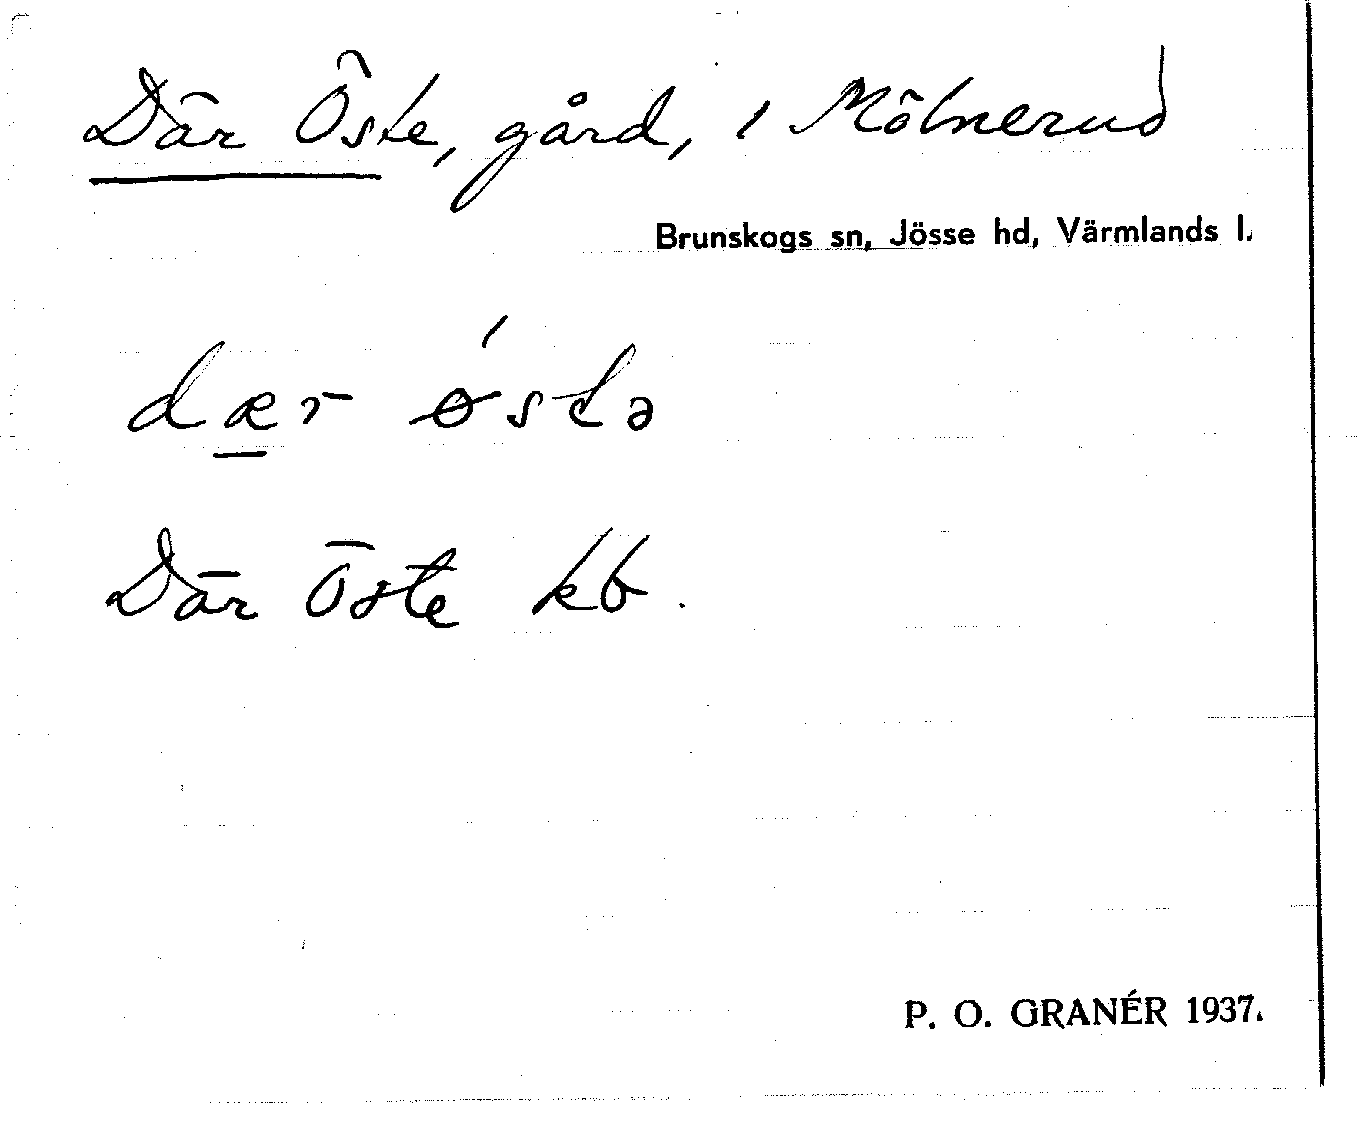 Där Öste, gård, i Mölnerud
Brunskogs sn, Jösse hd, Värmlands l.
dær ǿstə
Där Öste kb.
P. O. GRANÉR 1937.